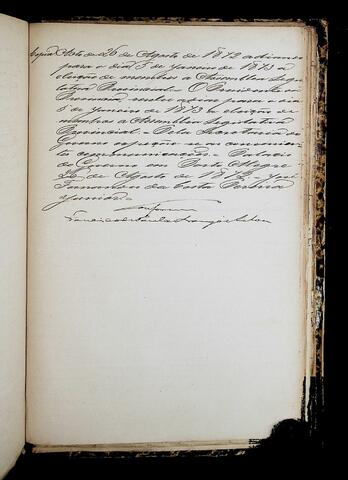 Copia Acto de 26 de Agosto de 1872 adiando
para o dia 5 de Janeiro de 1873 a
eleição de membros a Assembléa Legis
lativa Provincial. - O Presidente da
Provincia, resolve adiar para o dia
5 de Janeiro de 1873 a eleição de
membros a Assembléa Legislativa
Provincial. - Pela Secretaria do
Governo expeção-se as convenien
tes communicações. - Palacio
do Governo em Porto Alegre
26 de Agosto de 1872. - José
Fernandes da Costa Pereira
Junior. -
Conforme
Francisco de Paula